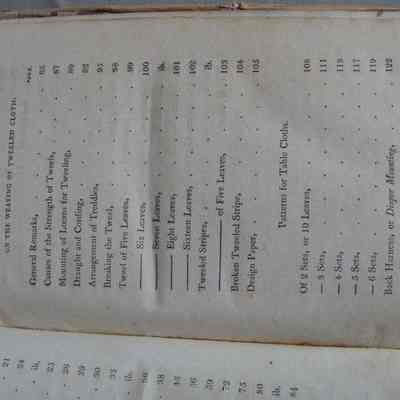 ON THE WEAVING OF TWEELED CLOTH.
PAGE.
General Remarks, . . . . 85
Causes of the Strength of Tweels, . . 87
Mounting of Looms for Tweeling, . . 89
Draught and Cording, . . . 92
Arrangement of Treddles, . . . 95
Breaking the Tweel, . . . . 98
Tweel of Five Leaves, . . . 99
——— Six Leaves, . . . . 100
——— Seven Leaves, . . . ib.
——— Eight Leaves, . . . 101
——— Sixteen Leaves, . . . 102
Tweeled Stripes, . . . . ib.
——————— of Five Leaves, . . 103
Broken Tweeled Stripe, . . . 104
Design Paper, . . . . 105
Patterns for Table Cloths.
Of 2 Sets, or 10 Leaves, . . . 108
— 3 Sets, . . . . 111
— 4 Sets, . . . . 113
— 5 Sets, . . . . 117
— 6 Sets, . . . . 119
Back Harness, or Diaper Mounting, . 122
21
24
ib.
25
26
29
30
33
ib.
36
38
43
36
59
72
75
80
ib.
84